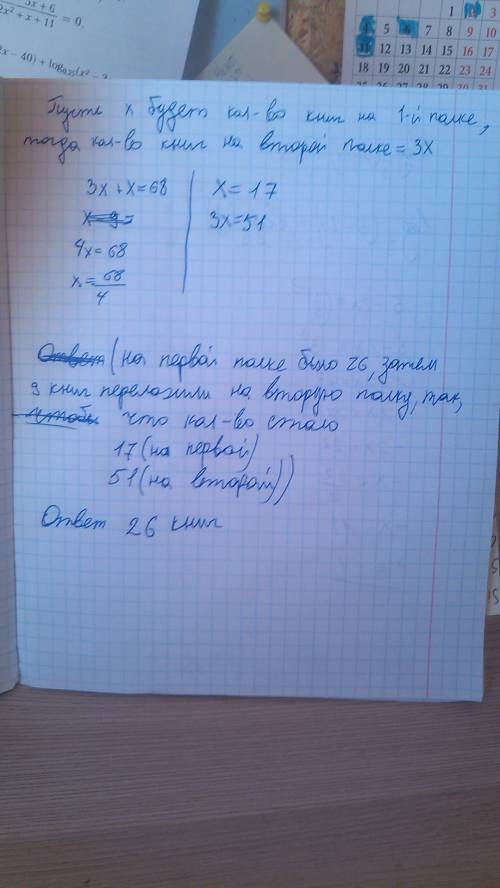 5x + 6
2x² + x + 11 = 0.
2x − 40) + log₀,₂₅(x² −
1 2 3
4 5 6 7 8 9 10
11 12 13 14 15 16 17
18 19 20 21 22 23 24
Пусть x будет кол-во книг на 1-й полке,
тогда кол-во книг на второй полке = 3x
3x + x = 68
x = 9 =
4x = 68
x = 68/4
x = 17
3x = 51
Ответ (на первой полке было 26, затем
9 книг переложили на вторую полку, так,
чтобы что кол-во стало
17 (на первой)
51 (на второй))
Ответ 26 книг